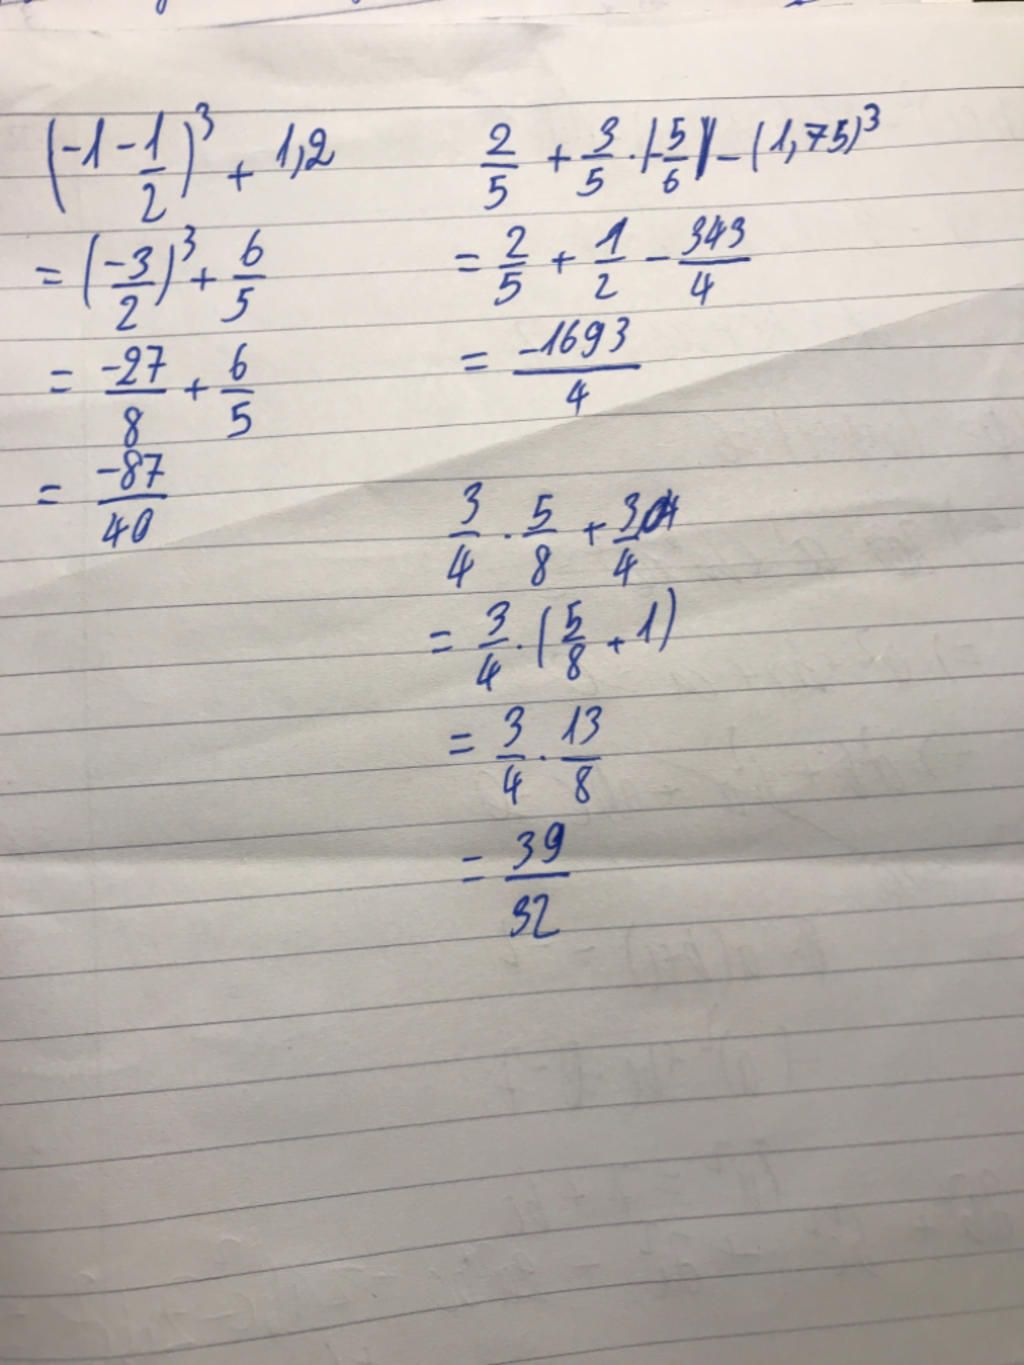 (-1 - 1/2)³ + 1,2
= (-3/2)³ + 6/5
= -27/8 + 6/5
= -87/40
2/5 + 3/5 · |-5/6| - (1,75)³
= 2/5 + 1/2 - 343/4
= -1693/4
3/4 · 5/8 + 3/4
= 3/4 · (5/8 + 1)
= 3/4 · 13/8
= 39/32